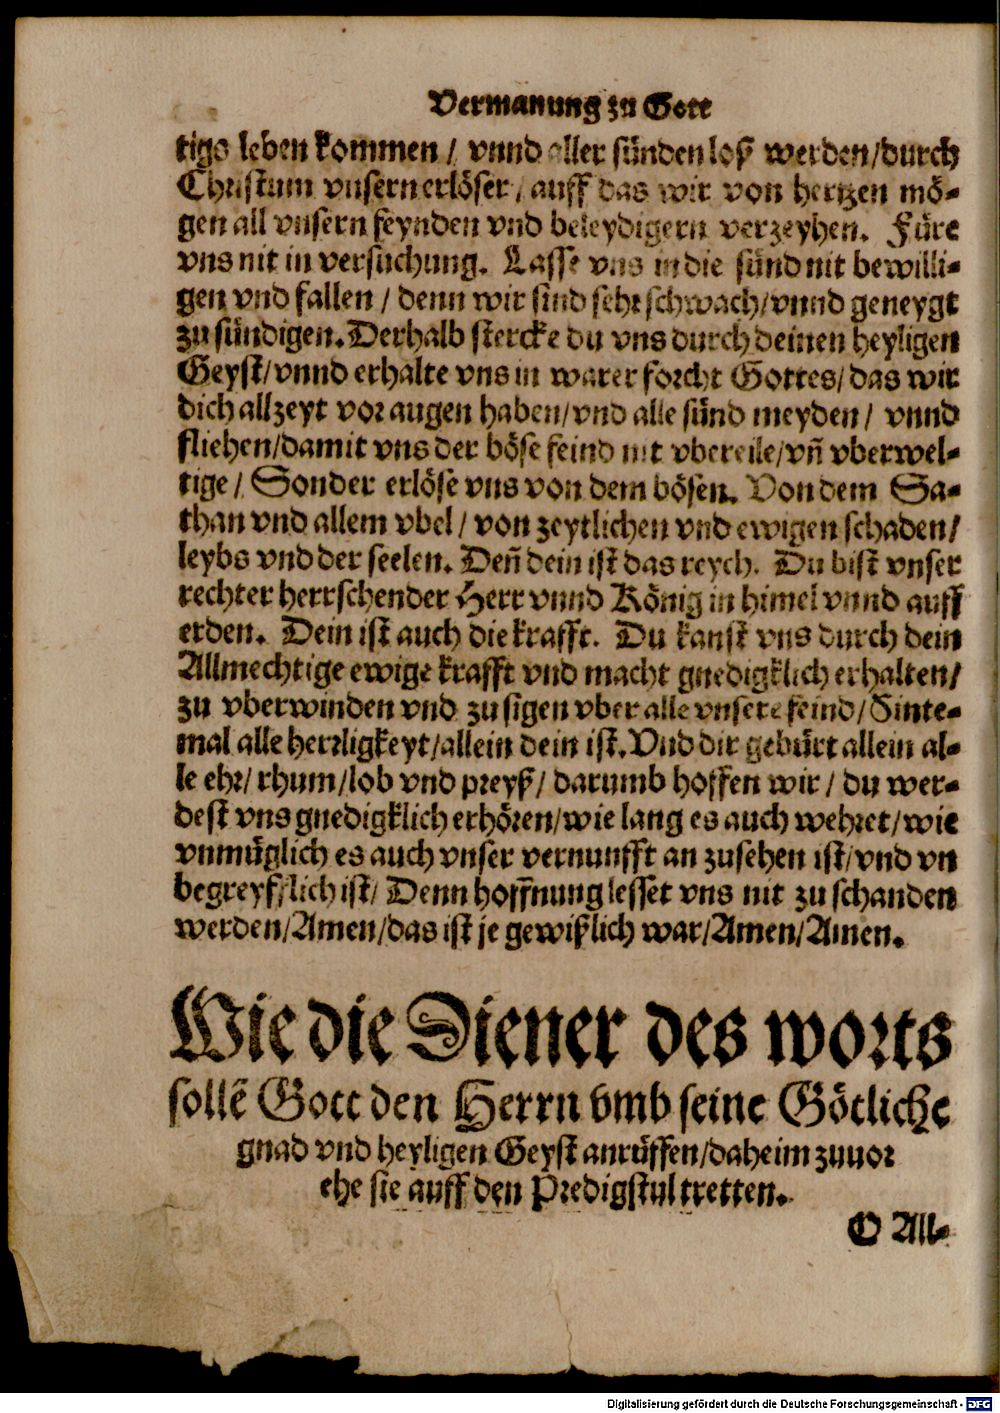 Vermanung zu Gott
tigs leben kommen / vnnd aller sünden loß werden/durch
Christum vnsern erlöser / auff das wir von hertzen mö-
gen all vnsern feynden vnd beleydigern verzeyhen. Füre
vns nit in versuchung. Lasse vns in die sünd nit bewilli-
gen vnd fallen / denn wir sind sehr schwach/vnnd geneygt
zu sündigen. Derhalb stercke du vns durch deinen heyligen
Geyst/vnnd erhalte vns in warer forcht Gottes/das wir
dich allzeyt vor augen haben/vnd alle sünd meyden / vnnd
fliehen/damit vns der böse feind nit vbereile/vñ vberwel-
tige / Sonder erlöse vns von dem bösen. Von dem Sa-
than vnd allem vbel / von zeytlichen vnd ewigen schaden/
leybs vnd der seelen. Deñ dein ist das reych. Du bist vnser
rechter herrschender Herr vnnd König in himel vnnd auff
erden. Dein ist auch die krafft. Du kanst vns durch dein
Allmechtige ewige krafft vnd macht gnedigklich erhalten/
zu vberwinden vnd zu sigen vber alle vnsere feind/Sinte-
mal alle herrligkeyt/allein dein ist. Vnd dir gebürt allein al-
le ehr/ rhum/lob vnd preyß/ darumb hoffen wir / du wer-
dest vns gnedigklich erhören/wie lang es auch wehret/wie
vnmüglich es auch vnser vernunfft an zusehen ist/vnd vn
begreyfflich ist/ Denn hoffnung lesset vns nit zu schanden
werden/Amen/das ist je gewißlich war/Amen/Amen.
Wie die Diener des worts
sollẽ Gott den Herrn vmb seine Götliche
gnad vnd heyligen Geyst anrüffen/daheim zuuor
ehe sie auff den Predigstul tretten.
O All-
Digitalisierung gefördert durch die Deutsche Forschungsgemeinschaft - DFG